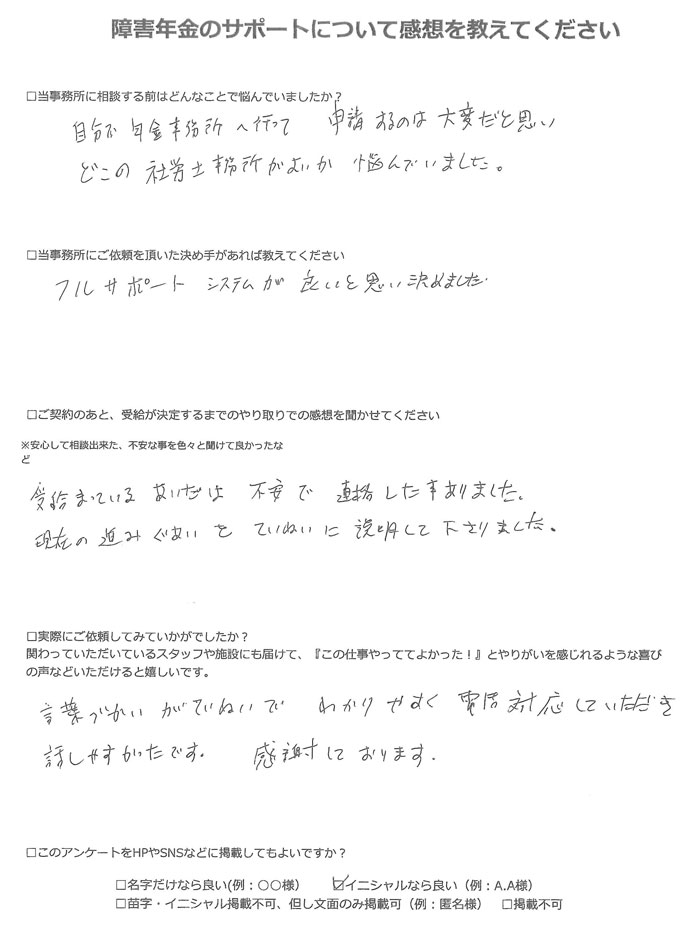 障害年金のサポートについて感想を教えてください
□当事務所に相談する前はどんなことで悩んでいましたか？
自分で 年金事務所 へ行って 申請するのは 大変だと思い
どこの 社労士事務所がよいか 悩んでいました。
□当事務所にご依頼を頂いた決め手があれば教えてください
フルサポート システムが 良いと思い決めました
□ご契約のあと、受給が決定するまでのやり取りでの感想を聞かせてください
※安心して相談出来た、不安な事を色々と聞けて良かったな
ど
受給まっている あいだは 不安で 連絡した事ありました。
現在の 進みぐあいを ていねいに 説明して下さりました。
□実際にご依頼してみていかがでしたか？
関わっていただいているスタッフや施設にも届けて、『この仕事やっててよかった！』とやりがいを感じれるような喜び
の声などいただけると嬉しいです。
言葉づかいがていねいで わかりやすく 電話対応していただき
話しやすかったです。 感謝しております。
□このアンケートをHPやSNSなどに掲載してもよいですか？
□名字だけなら良い(例：○○様） ☑イニシャルなら良い（例：A.A様）
□苗字・イニシャル掲載不可、但し文面のみ掲載可（例：匿名様） □掲載不可